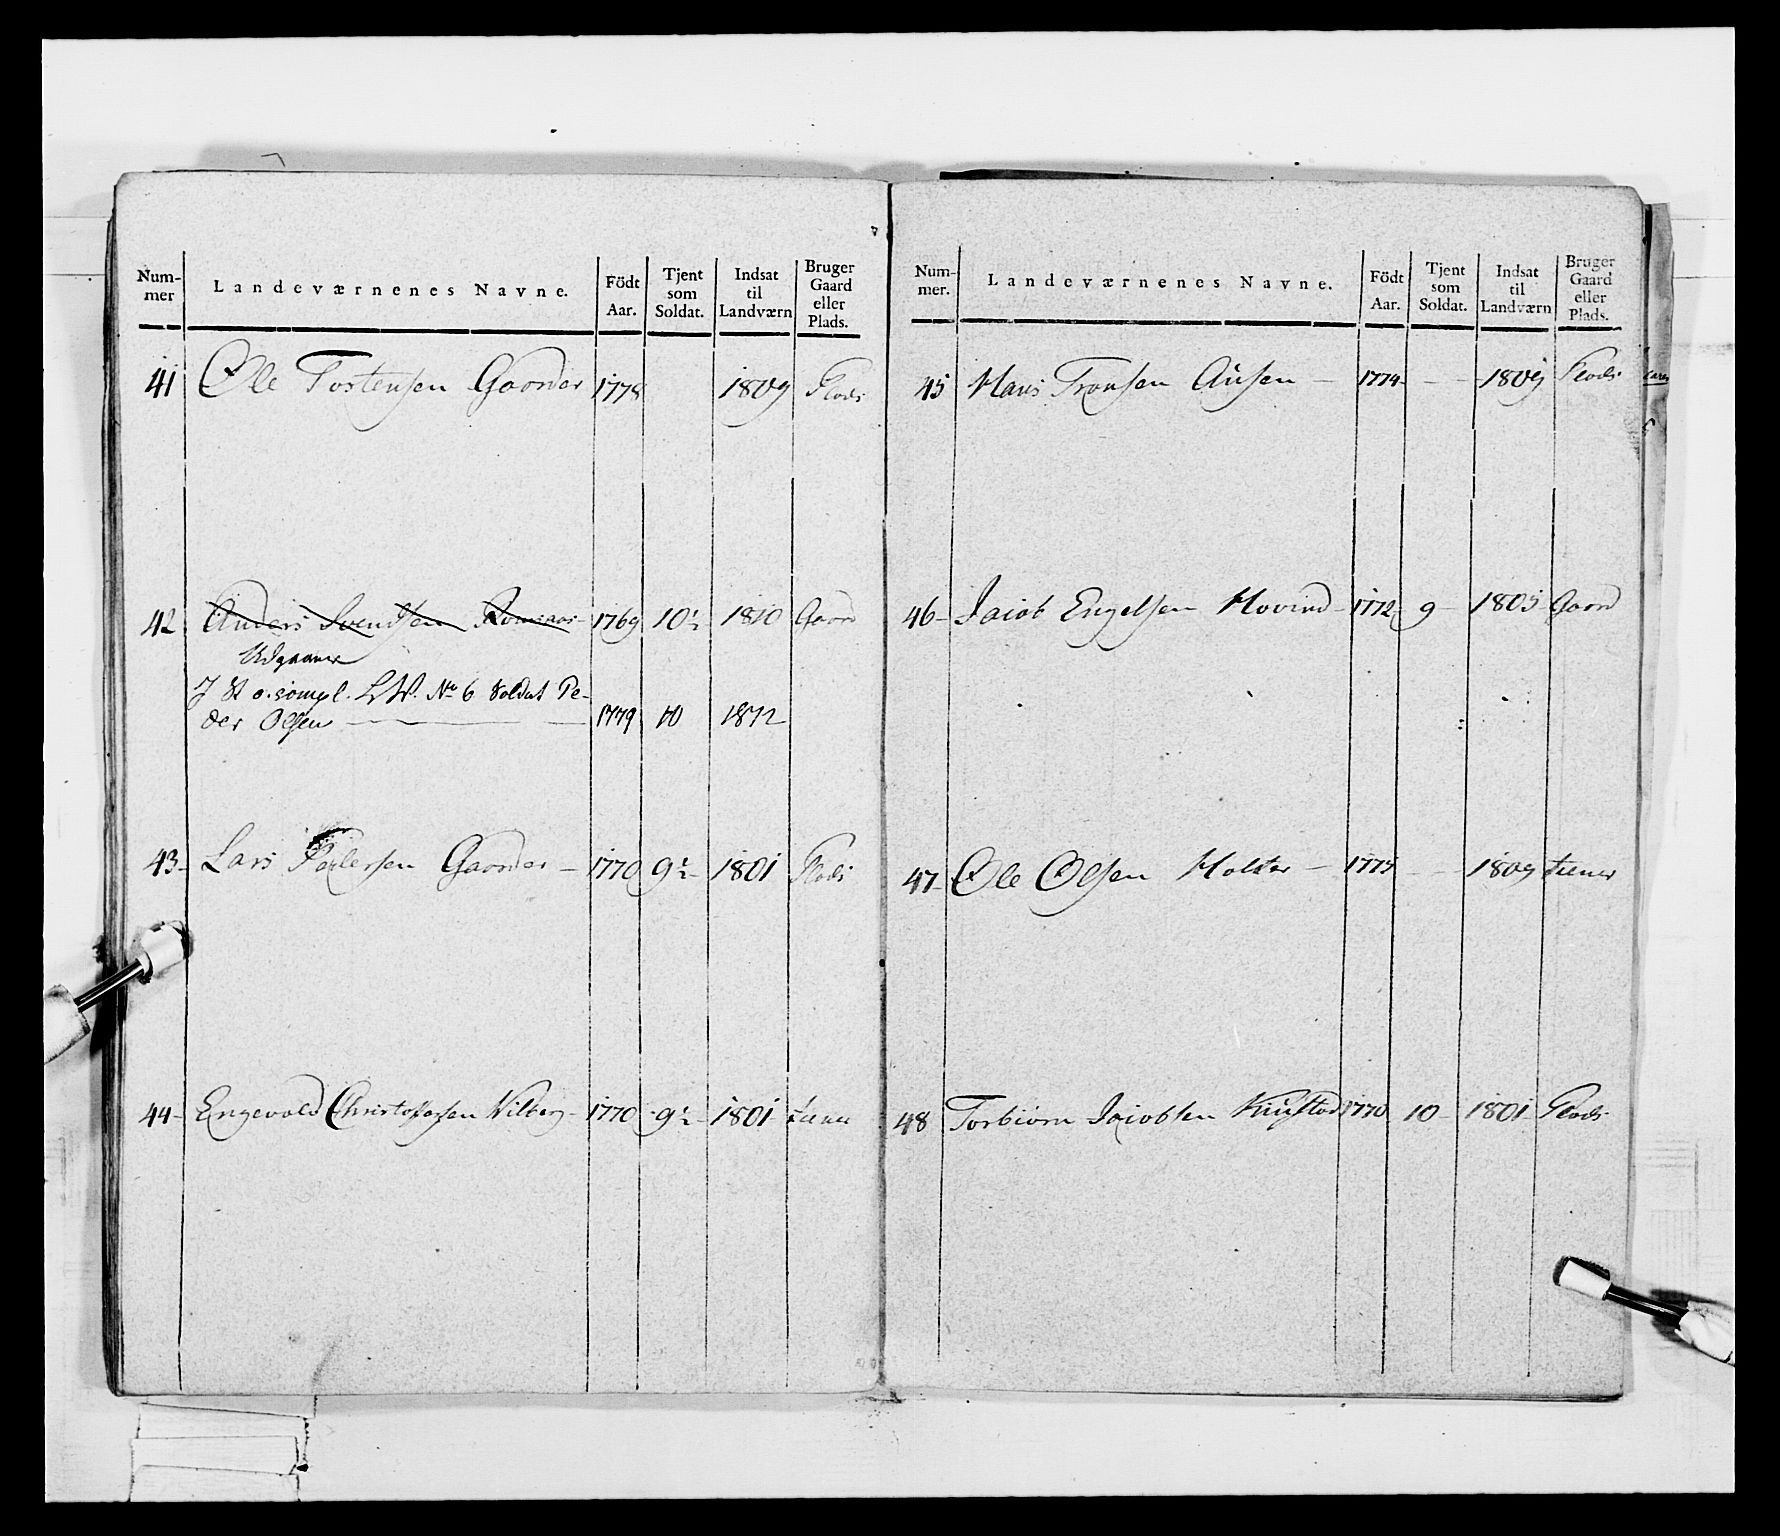 Num-
mer
Landeværnenes Navne.
Födt
Aar.
Tjent
som
Soldat.
Indsat
til
Landværn
Bruger
Gaard
eller
Plads.
41 Ole Tostensen Gaarder 1778 1809 Plads
42 Anders Svendsen 1769 10½ 1810 Gaard
Udgaaner
J St o. sompl. LW. No 6 Soldat Pe-
der Olsen 1779 10 1812
43- Lars Pedersen Gaarder - 1770 9½- 1801 Plads
44- Engevold Christophersen Vilberg- 1770 9½- 1801 tiener
Num-
mer.
Landeværnenes Navne.
Födt
Aar.
Tjent
som
Soldat.
Indsat
til
Landværn
Bruger
Gaard
eller
Plads.
45 Hans Tronsen Ausen - 1774- - - 1809 Plads
46- Jacob Engelsen Hovind- 1772- 9- 1805 Gaard
47- Ole Olsen Holter - 1775 - - 1809 tiener
48 Torbiørn Jacobsen 1770 10- 1801 Plads